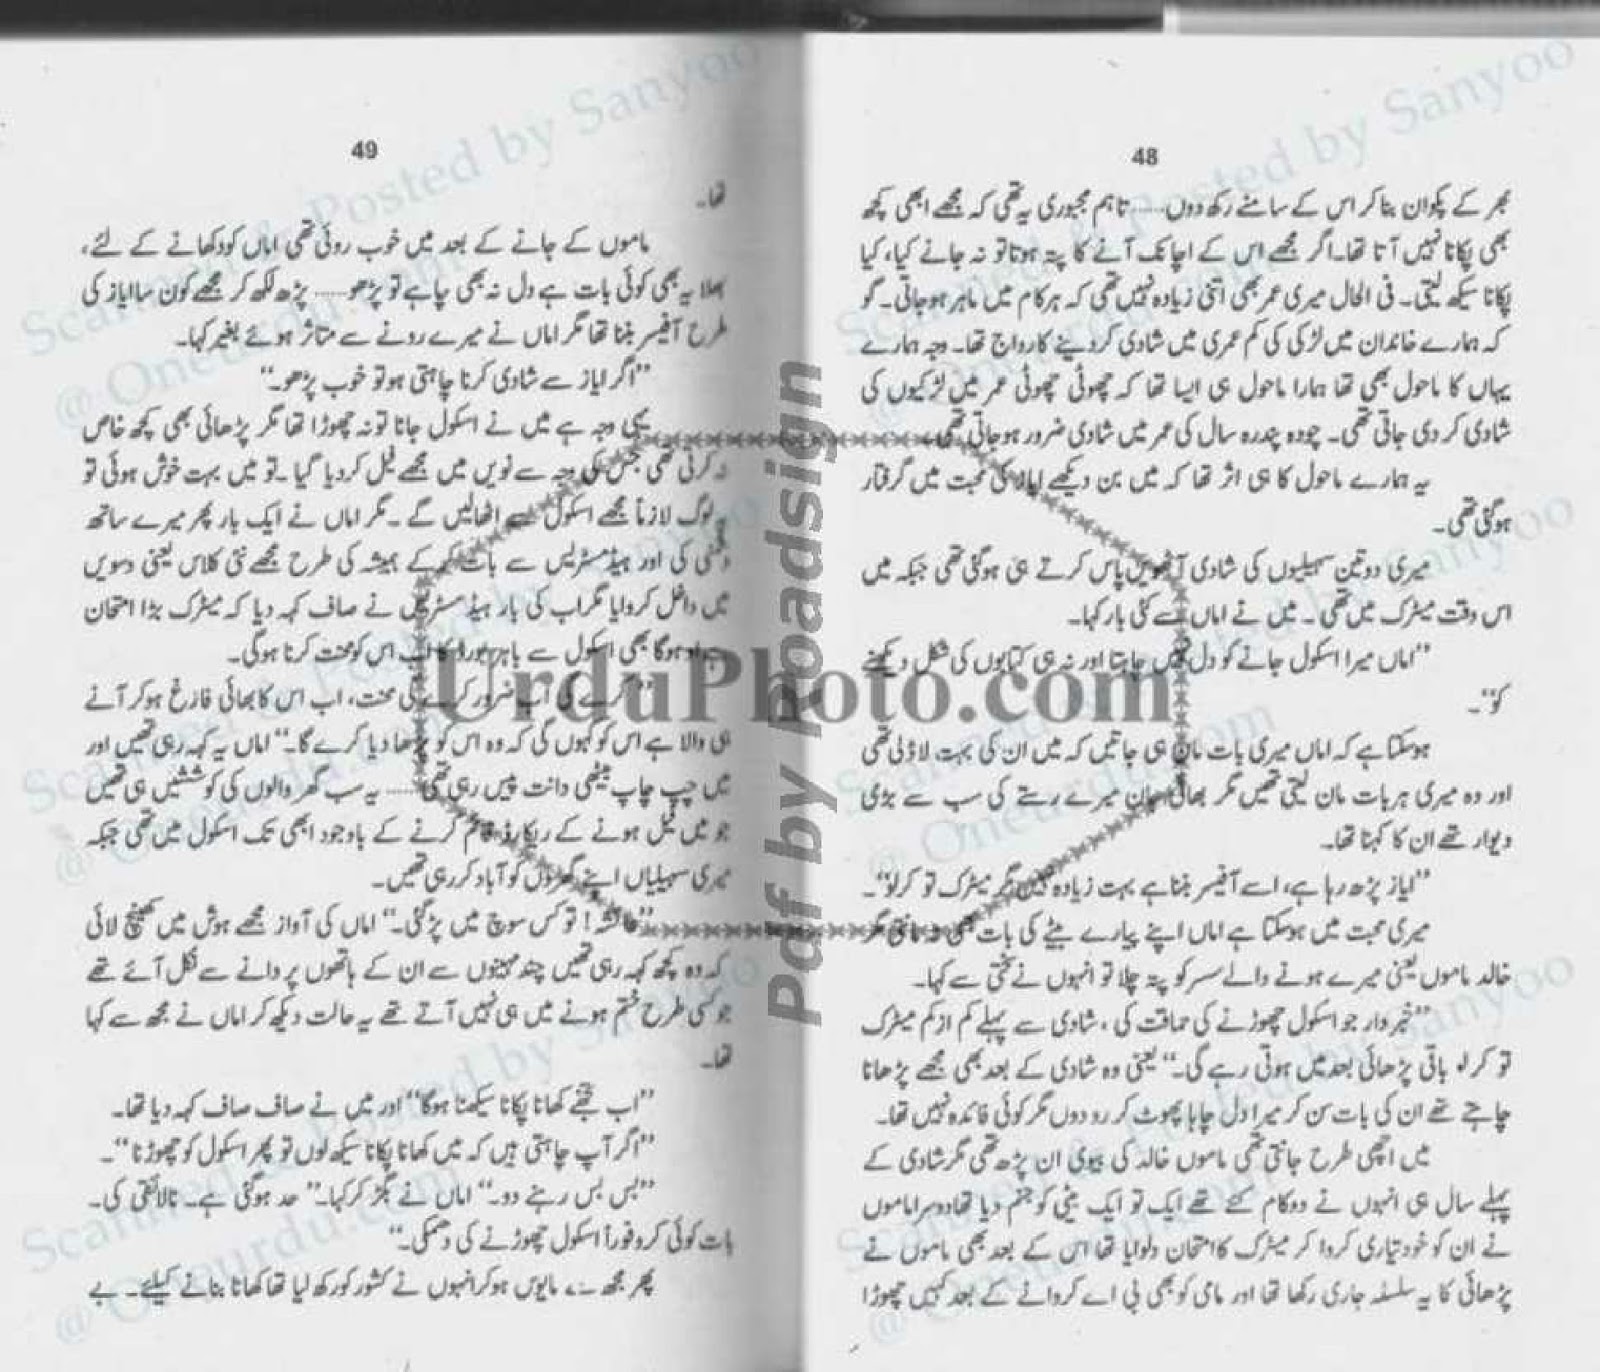 48
بھر کے پکوان بنا کر اس کے سامنے رکھ دوں...... تاہم مجبوری یہ تھی کہ مجھے ابھی کچھ
بھی پکانا نہیں آتا تھا۔ اگر مجھے اس کے اچانک آنے کا پتہ ہوتا تو نہ جانے کیا، کیا
پکانا سیکھ لیتی۔ فی الحال میری عمر بھی اتنی زیادہ نہیں تھی کہ ہر کام میں ماہر ہو جاتی۔ گو
کہ ہمارے خاندان میں لڑکی کی کم عمری میں شادی کر دینے کا رواج تھا۔ وجہ ہمارے
یہاں کا ماحول بھی تھا ہمارا ماحول ہی ایسا تھا کہ چھوٹی چھوٹی عمر میں لڑکیوں کی
شادی کر دی جاتی تھی۔ چودہ پندرہ سال کی عمر میں شادی ضرور ہو جاتی تھی۔
یہ ہمارے ماحول کا ہی اثر تھا کہ میں بن دیکھے ایاز کی محبت میں گرفتار
ہو گئی تھی۔
میری دو تین سہیلیوں کی شادی آٹھویں پاس کرتے ہی ہو گئی تھی جبکہ میں
اس وقت میٹرک میں تھی۔ میں نے اماں سے کئی بار کہا۔
”اماں میرا اسکول جانے کو دل نہیں چاہتا اور نہ ہی کتابوں کی شکل دیکھنے
کو“۔
ہو سکتا ہے کہ اماں میری بات مان ہی جاتیں کہ میں ان کی بہت لاڈلی تھی
اور وہ میری ہر بات مان لیتی تھیں مگر بھائی جان میرے رستے کی سب سے بڑی
دیوار تھے ان کا کہنا تھا۔
”ایاز پڑھ رہا ہے، اسے آفیسر بننا ہے بہت زیادہ نہیں مگر میٹرک تو کر لو“۔
میری محبت میں ہو سکتا ہے اماں اپنے پیارے بیٹے کی بات بھی نہ مانتی مگر
خالد ماموں یعنی میرے ہونے والے سسر کو پتہ چلا تو انہوں نے سختی سے کہا۔
”خبردار جو اسکول چھوڑنے کی حماقت کی، شادی سے پہلے کم از کم میٹرک
تو کر لو باقی پڑھائی بعد میں ہوتی رہے گی۔“ یعنی وہ شادی کے بعد بھی مجھے پڑھانا
چاہتے تھے ان کی بات سن کر میرا دل چاہا پھوٹ کر رو دوں مگر کوئی فائدہ نہیں تھا۔
میں اچھی طرح جانتی تھی ماموں خالد کی بیوی ان پڑھ تھی مگر شادی کے
پہلے سال ہی انہوں نے دو کام کئے تھے ایک تو ایک بیٹی کو جنم دیا تھا دوسرا ماموں
نے ان کو خود تیاری کروا کر میٹرک کا امتحان دلوایا تھا اس کے بعد بھی ماموں نے
پڑھائی کا یہ سلسلہ جاری رکھا تھا اور مامی کو بھی بی اے کروانے کے بعد کہیں چھوڑا
49
تھا۔
ماموں کے جانے کے بعد میں خوب روئی تھی اماں کو دکھانے کے لئے،
بھلا یہ بھی کوئی بات ہے دل نہ بھی چاہے تو پڑھو...... پڑھ لکھ کر مجھے کون سا ایاز کی
طرح آفیسر بننا تھا مگر اماں نے میرے رونے سے متاثر ہوئے بغیر کہا۔
”اگر ایاز سے شادی کرنا چاہتی ہو تو خوب پڑھو۔“
یہی وجہ ہے میں نے اسکول جانا تو نہ چھوڑا تھا مگر پڑھائی بھی کچھ خاص
نہ کرتی تھی جس کی وجہ سے نویں میں مجھے فیل کر دیا گیا۔ تو میں بہت خوش ہوئی تو
یہ لوگ لازماً مجھے اسکول سے اٹھالیں گے۔ مگر اماں نے ایک بار پھر میرے ساتھ
دشمنی کی اور ہیڈمسٹریس سے بات کر کے ہمیشہ کی طرح مجھے نئی کلاس یعنی دسویں
میں داخل کروایا مگر اب کی بار ہیڈ مسٹریس نے صاف کہہ دیا کہ میٹرک بڑا امتحان
ہوگا بھی اسکول سے باہر بورڈ کا اب اس کو محنت کرنا ہوگی۔
”کرے گی اب ضرور کرے گی محنت، اب اس کا بھائی فارغ ہو کر آنے
ہی والا ہے اس کو کہوں گی کہ وہ اس کو پڑھا دیا کرے گا۔“ اماں یہ کہہ رہی تھیں اور
میں چپ چاپ بیٹھی دانت پیس رہی تھی...... یہ سب گھر والوں کی کوششیں ہی تھیں
جو میں فیل ہونے کے ریکارڈ قائم کرنے کے باوجود ابھی تک اسکول میں تھی جبکہ
میری سہیلیاں اپنے گھروں کو آباد کر رہی تھیں۔
”عائشہ! تو کس سوچ میں پڑ گئی۔“ اماں کی آواز مجھے ہوش میں کھینچ لائی
کہ وہ کچھ کہہ رہی تھیں چند مہینوں سے ان کے ہاتھوں پر دانے سے نکل آئے تھے
جو کسی طرح ختم ہونے میں ہی نہیں آتے تھے یہ حالت دیکھ کر اماں نے مجھ سے کہا
تھا۔
”اب تجھے کھانا پکانا سیکھنا ہوگا“ اور میں نے صاف صاف کہہ دیا تھا۔
”اگر آپ چاہتی ہیں کہ میں کھانا پکانا سیکھ لوں تو پھر اسکول کو چھوڑنا“۔
”بس بس رہنے دو۔“ اماں نے بگڑ کر کہا۔” حد ہو گئی ہے۔ نالائقی کی۔
بات کوئی کرو فوراً اسکول چھوڑنے کی دھمکی۔“
پھر مجھ سے مایوس ہو کر انہوں نے کشور کو رکھ لیا تھا کھانا بنانے کیلئے۔ بے
UrduPhoto.com
Pdf by Roadsign
Scanned & Posted by Sanyoo
@ Oneurdu.com